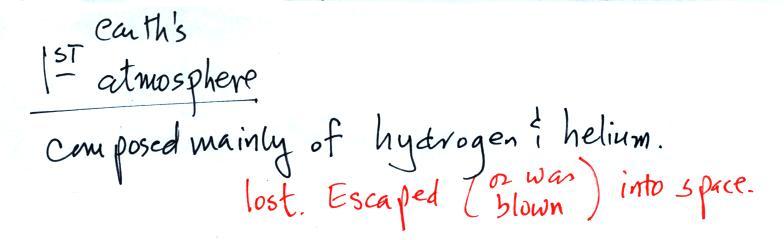 earth's
1ST atmosphere
composed mainly of hydrogen & helium.
lost. Escaped (or was blown) into space.